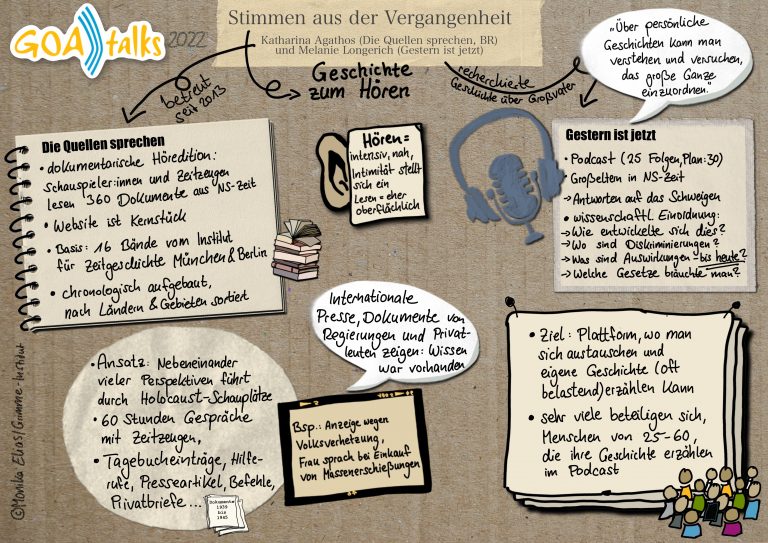 GOA talks 2022
Stimmen aus der Vergangenheit
Katharina Agathos (Die Quellen sprechen, BR)
und Melanie Longerich (Gestern ist jetzt)
betreut
seit 2013
Geschichte
zum Hören
recherchierte
Geschichte über Großvater
„Über persönliche
Geschichten kann man
verstehen und versuchen,
das große Ganze
einzuordnen."
Die Quellen sprechen
• dokumentarische Höredition:
Schauspieler:innen und Zeitzeugen
lesen 360 Dokumente aus NS-Zeit
• Website ist Kernstück
• Basis: 16 Bände vom Institut
für Zeitgeschichte München & Berlin
• chronologisch aufgebaut,
nach Ländern & Gebieten sortiert
Hören =
intensiv, nah,
Intimität stellt
sich ein
Lesen = eher
oberflächlich
Gestern ist jetzt
• Podcast (25 Folgen, Plan: 30)
• Großeltern in NS-Zeit
→ Antworten auf das Schweigen
• wissenschaftl. Einordnung:
→ Wie entwickelte sich dies?
→ Wo sind Diskriminierungen?
→ Was sind Auswirkungen - bis heute?
→ Welche Gesetze bräuchte man?
Internationale
Presse, Dokumente von
Regierungen und Privat-
leuten zeigen: Wissen
war vorhanden
• Ansatz: Nebeneinander
vieler Perspektiven führt
durch Holocaust-Schauplätze
• 60 Stunden Gespräche
mit Zeitzeugen,
• Tagebucheinträge, Hilfe-
rufe, Presseartikel, Befehle,
Privatbriefe ...
Dokumente
1939
bis
1945
Bsp.: Anzeige wegen
Volksverhetzung,
Frau sprach bei Einkauf
von Massenerschießungen
• Ziel: Plattform, wo man
sich austauschen und
eigene Geschichte (oft
belastend) erzählen kann
• sehr viele beteiligen sich,
Menschen von 25-60,
die ihre Geschichte erzählen
im Podcast
©Monika Elias/Grimme-Institut